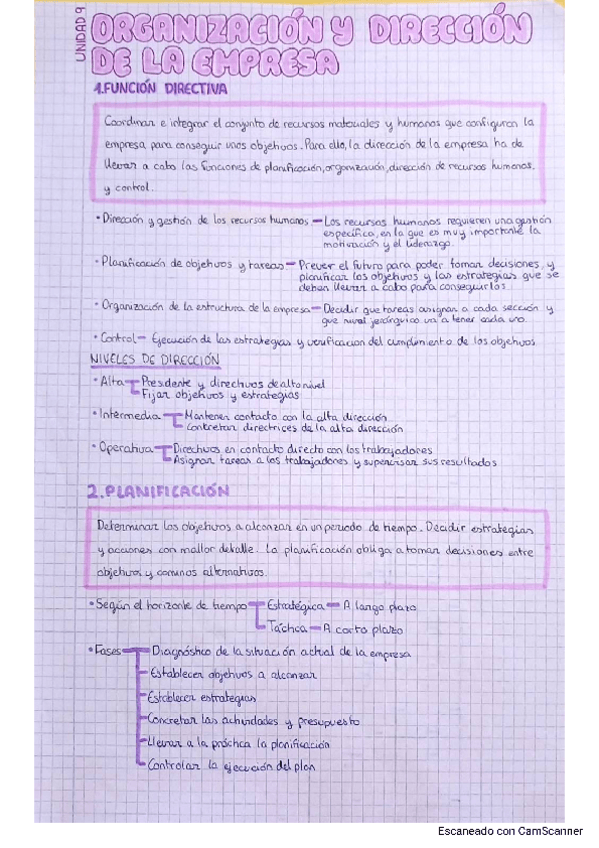 UNIDAD 9
ORGANIZACIÓN Y DIRECCIÓN
DE LA EMPRESA
1.FUNCIÓN DIRECTIVA
Coordinar e integrar el conjunto de recursos materiales y humanos que configuran la
empresa para conseguir unos objetivos. Para ello, la dirección de la empresa ha de
llevar a cabo las funciones de planificación, organización, dirección de recursos humanos,
y control.
• Dirección y gestión de los recursos humanos — Los recursos humanos requieren una gestión
específica, en la que es muy importante la
motivación y el liderazgo.
• Planificación de objetivos y tareas — Prever el futuro para poder tomar decisiones, y
planificar los objetivos y las estrategias que se
deban llevar a cabo para conseguirlos.
• Organización de la estructura de la empresa — Decidir que tareas asignar a cada sección y
que nivel jerárquico va a tener cada uno.
• Control — Ejecución de las estrategias y verificacion del cumplimiento de los objetivos.
NIVELES DE DIRECCIÓN
• Alta Presidente y directivos de alto nivel
Fijar objetivos y estrategias
• Intermedia Mantener contacto con la alta dirección
Concretar directrices de la alta dirección
• Operativa Directivos en contacto directo con los trabajadores
Asignar tareas a los trabajadores y supervisar sus resultados
2.PLANIFICACIÓN
Determinar los objetivos a alcanzar en un periodo de tiempo. Decidir estrategias
y acciones con mallor detalle. La planificación obliga a tomar decisiones entre
objetivos y caminos alternativos.
• Según el horizonte de tiempo Estratégica — A largo plazo
Táctica — A corto plazo
• Fases Diagnóstico de la situación actual de la empresa
Establecer objetivos a alcanzar
Establecer estrategias
Concretar las actividades y presupuesto
Llevar a la práctica la planificación
Controlar la ejecución del plan
Escaneado con CamScanner